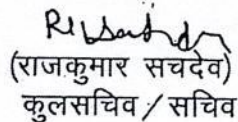 (राजकुमार सचदेव)
कुलसचिव / सचिव